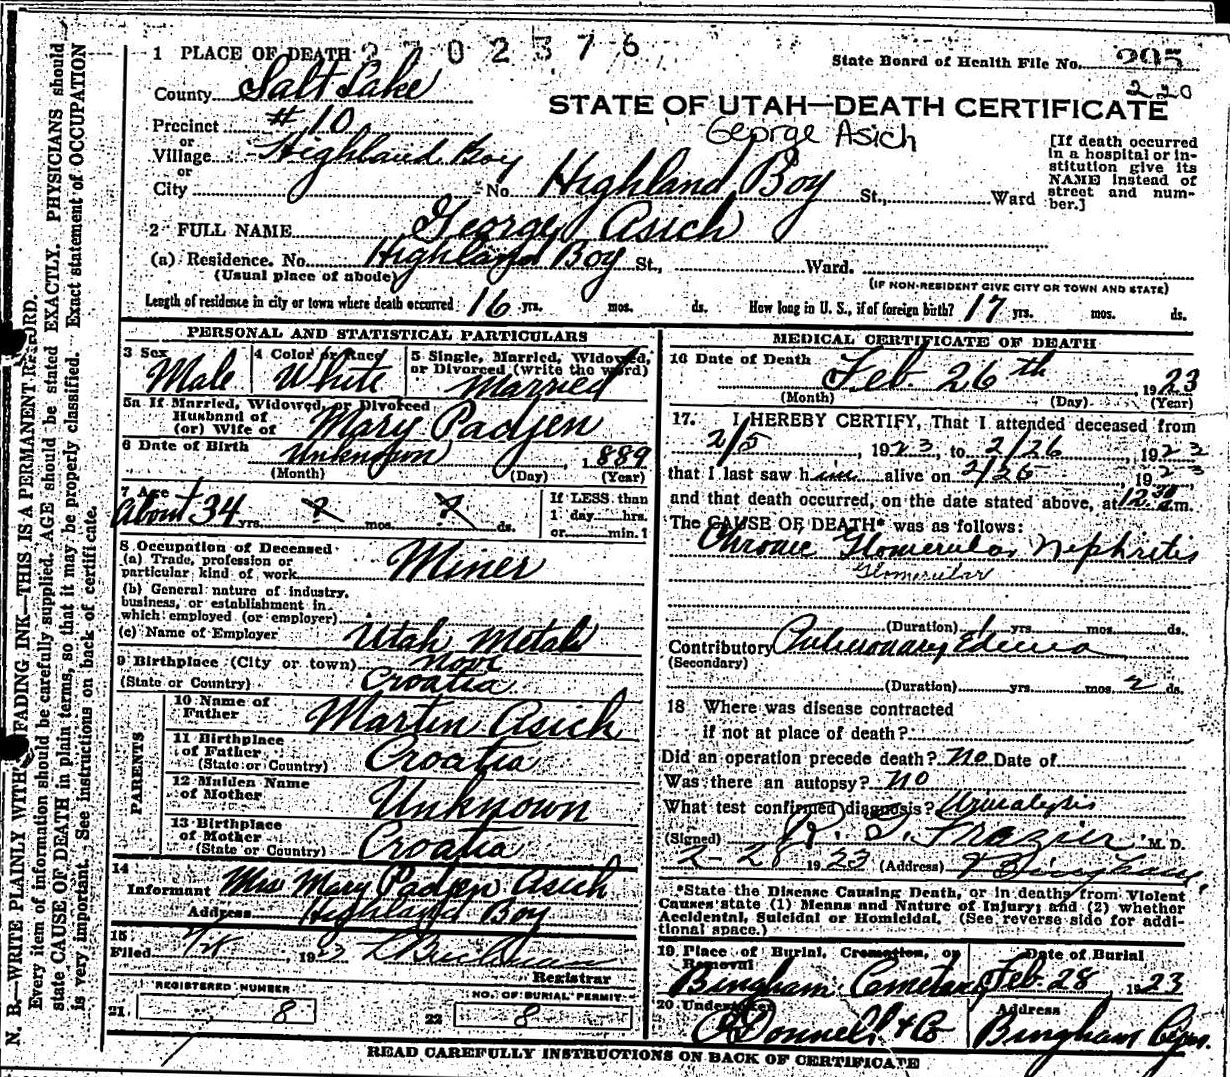 2702376
1 PLACE OF DEATH
State Board of Health File No. 295
220
County Salt Lake
STATE OF UTAH—DEATH CERTIFICATE
George Asich
Precinct # 10
or
Village Highland Boy
or
City No. Highland Boy St., Ward
[If death occurred in a hospital or institution give its NAME instead of street and number.]
2 FULL NAME George Asich
(a) Residence. No. Highland Boy St., Ward.
(Usual place of abode) (IF NON-RESIDENT GIVE CITY OR TOWN AND STATE)
Length of residence in city or town where death occurred 16 yrs. mos. ds. How long in U. S., if of foreign birth? 17 yrs. mos. ds.
PERSONAL AND STATISTICAL PARTICULARS
3 Sex Male
4 Color or Race White
5 Single, Married, Widowed, or Divorced (write the word) Married
5a If Married, Widowed, or Divorced
Husband of
(or) Wife of Mary Padjen
6 Date of Birth Unknown, 1889
(Month) (Day) (Year)
7 Age About 34 yrs. ? mos. ? ds.
If LESS than
1 day hrs.
or min.?
8 Occupation of Deceased
(a) Trade, profession or
particular kind of work Miner
(b) General nature of industry,
business, or establishment in
which employed (or employer)
(c) Name of Employer Utah Metals
9 Birthplace (City or town) Novi
(State or Country) Croatia
PARENTS
10 Name of
Father Martin Asich
11 Birthplace
of Father
(State or Country) Croatia
12 Maiden Name
of Mother Unknown
13 Birthplace
of Mother
(State or Country) Croatia
14
Informant Mrs Mary Padjen Asich
Address Highland Boy
15
Filed 2/28, 1923
Registrar
REGISTERED NUMBER
21. 8
NO. OF BURIAL PERMIT
22 8
MEDICAL CERTIFICATE OF DEATH
16 Date of Death Feb 26th 1923
(Month) (Day) (Year)
17. I HEREBY CERTIFY, That I attended deceased from
2/5, 1923, to 2/26, 1923
that I last saw him alive on 2/25, 1923
and that death occurred, on the date stated above, at 12.30 a.m.
The CAUSE OF DEATH* was as follows:
Chronic Glomerular Nephritis
Glomerular
(Duration) 1 yrs. mos. ds.
Contributory Pulmonary Edema
(Secondary)
(Duration) yrs. mos. 2 ds.
18 Where was disease contracted
if not at place of death?
Did an operation precede death? No Date of
Was there an autopsy? No
What test confirmed diagnosis? Urinalysis
(Signed) R. G. Frazier M. D.
2-28 1923 (Address) Bingham
*State the Disease Causing Death, or in deaths from Violent
Causes state (1) Means and Nature of Injury; and (2) whether
Accidental, Suicidal or Homicidal. (See reverse side for additional space.)
19 Place of Burial, Cremation, or Removal Date of Burial
Bingham Cemetary Feb. 28 1923
20 Undertaker Address
O'Donnell & Co Bingham Cyn.
READ CAREFULLY INSTRUCTIONS ON BACK OF CERTIFICATE
N. B.—WRITE PLAINLY WITH UNFADING INK—THIS IS A PERMANENT RECORD.
Every item of information should be carefully supplied. AGE should be stated EXACTLY. PHYSICIANS should
state CAUSE OF DEATH in plain terms, so that it may be properly classified. Exact statement of OCCUPATION
is very important. See instructions on back of certificate.